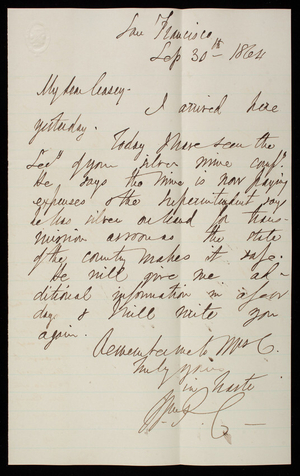 San Francisco
Sep 30th 1864
My dear Casey.
I arrived here
yesterday. Today I have seen the
Secy of your silver mine compy.
He says the mine is now paying
expenses & the Superintendent says
he has silver on hand for trans-
mission as soon as the state
of the country makes it safe.
He will give me ad-
ditional information in a few
days & I will write you
again.
Remember me to Mrs C.
Truly yours
in haste